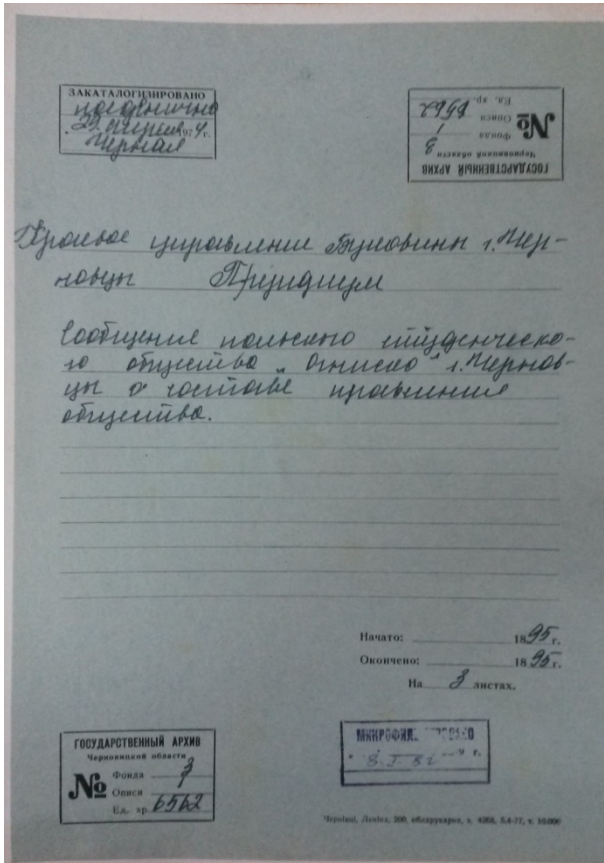 ЗАКАТАЛОГИЗИРОВАНО
29 апреля 1974 г.
ГОСУДАРСТВЕННЫЙ АРХИВ
Черновицкой области
№
Фонда
Описи 1
Ед. хр.
Краевое управление Буковины г. Чер-
новцы Президиум
Сообщение польского студенческо-
го общества „Огниско" г. Чернов-
цы о составе правления
общества.
Начато: 1895 г.
Окончено: 1895 г.
На 3 листах.
ГОСУДАРСТВЕННЫЙ АРХИВ
Черновицкой области
№
Фонда 3
Описи 1
Ед. хр. 6562
Чернівці, Леніна, 200, облдрукарня, з. 4268, 5.4-77, т. 10.000